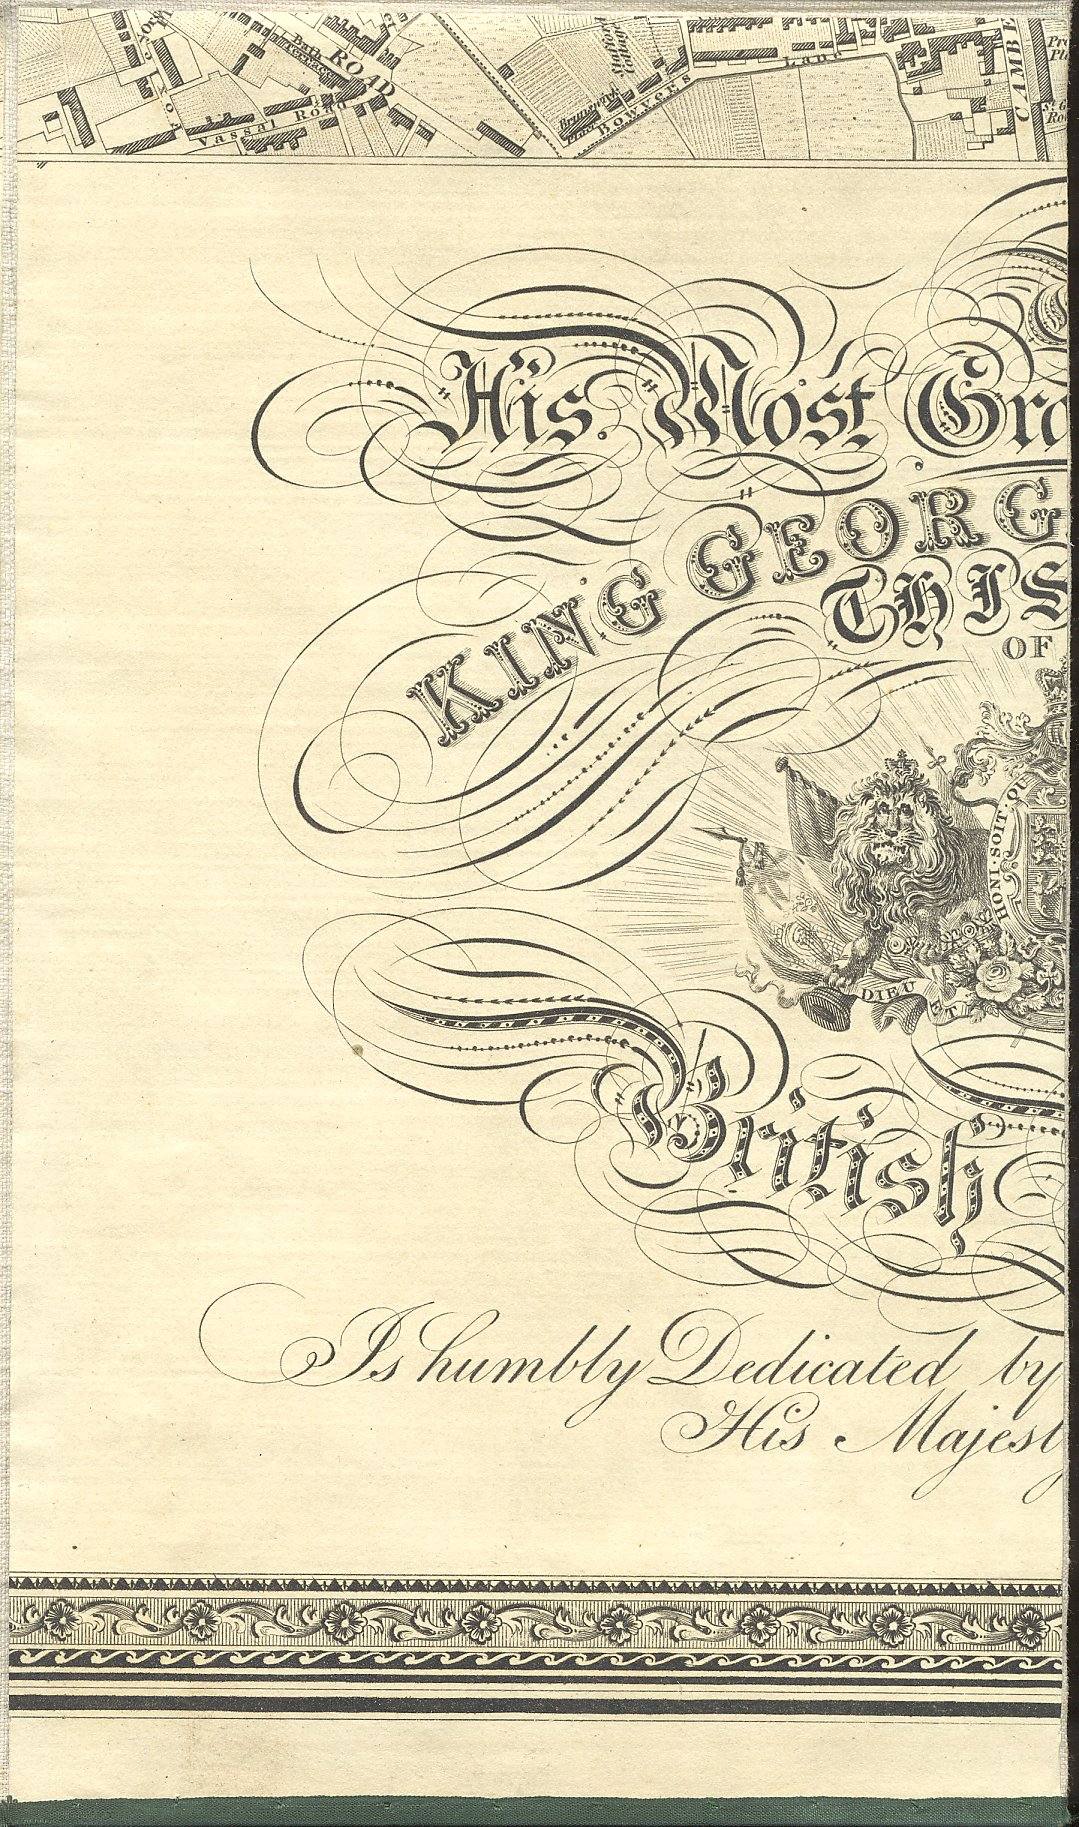 Bath
Terrace
ROAD
Vassal Road
Stockton
Cottage
Brunswick
Place
Bowyers Lane
CAMBE
His Most Gra
KING GEORG
THIS
OF
HONI · SOIT · QU
DIEU ET
British
Is humbly Dedicated by
His Majesty